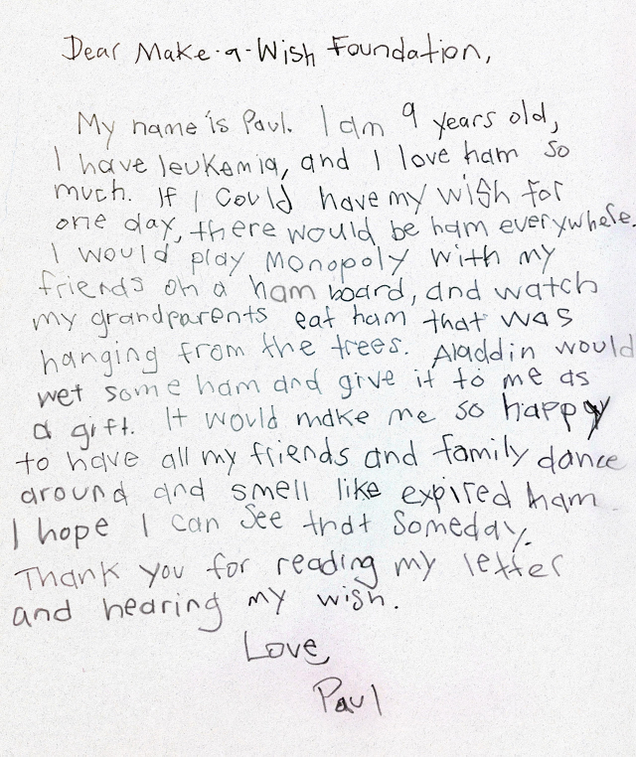 Dear Make-a-Wish Foundation,
My name is Paul. I am 9 years old,
I have leukemia, and I love ham so
much. If I could have my wish for
one day, there would be ham everywhere.
I would play Monopoly with my
friends on a ham board, and watch
my grandparents eat ham that was
hanging from the trees. Aladdin would
wet some ham and give it to me as
a gift. It would make me so happy
to have all my friends and family dance
around and smell like expired ham.
I hope I can see that someday.
Thank you for reading my letter
and hearing my wish.
Love,
Paul